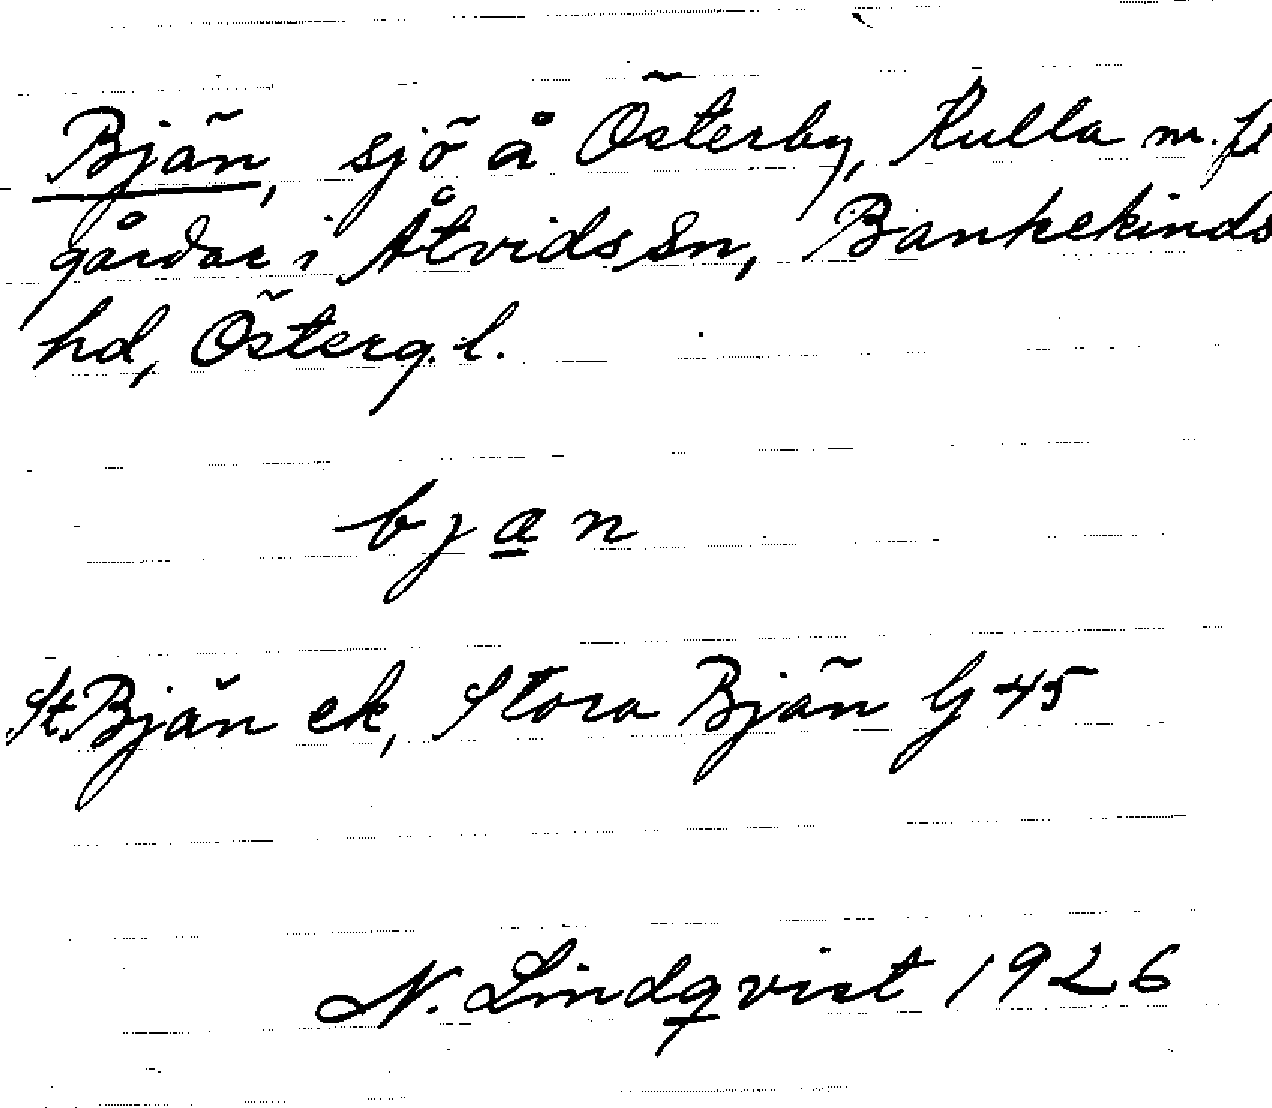 Bjän, sjö å Österby, Kulla m. fl
gårdar i Åtvids sn, Bankekinds
hd, Österg. l.
bjan
St. Bjän ek, Stora Bjän G 45
N. Lindqvist 1926